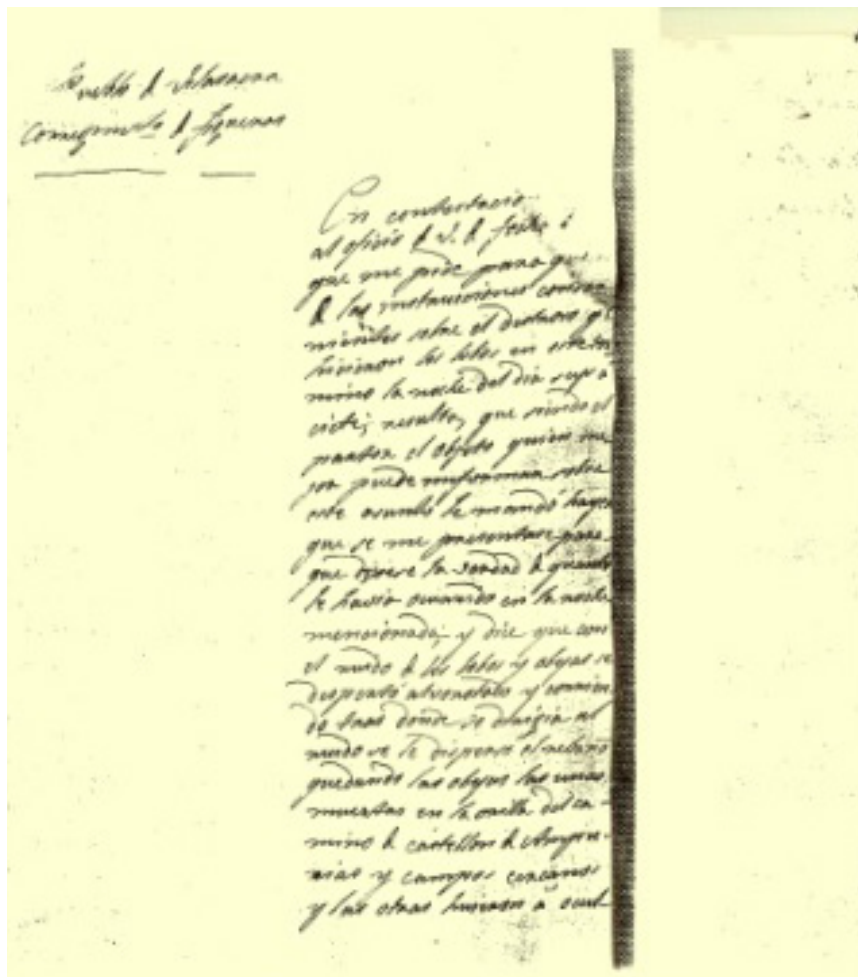 Pueblo d Vilanova
Corregimto d Figueras
En contestacio
al oficio d V. d fecha
que me pide para que
d las instrucciones
sobre el destroso q
hicieron los lobos en este
mino la noche del dia
siete; resulta, que siendo el
pastor el objeto quien me
jor puede informar sobre
este asunto le mandó
que se me presentase para
que dijese la verdad d quanto
le havia ocurrido en la noche
mencionada; y dice que con
el ruido d los lobos y obejas se
despertó y corrien
do tras donde se dirigia el
ruido se le disperso el rebaño
quedando las obejas las unas
muertas en la orilla del ca-
mino d Castellon d Ampu-
rias y campos cercanos
y las otras huieron á ocul